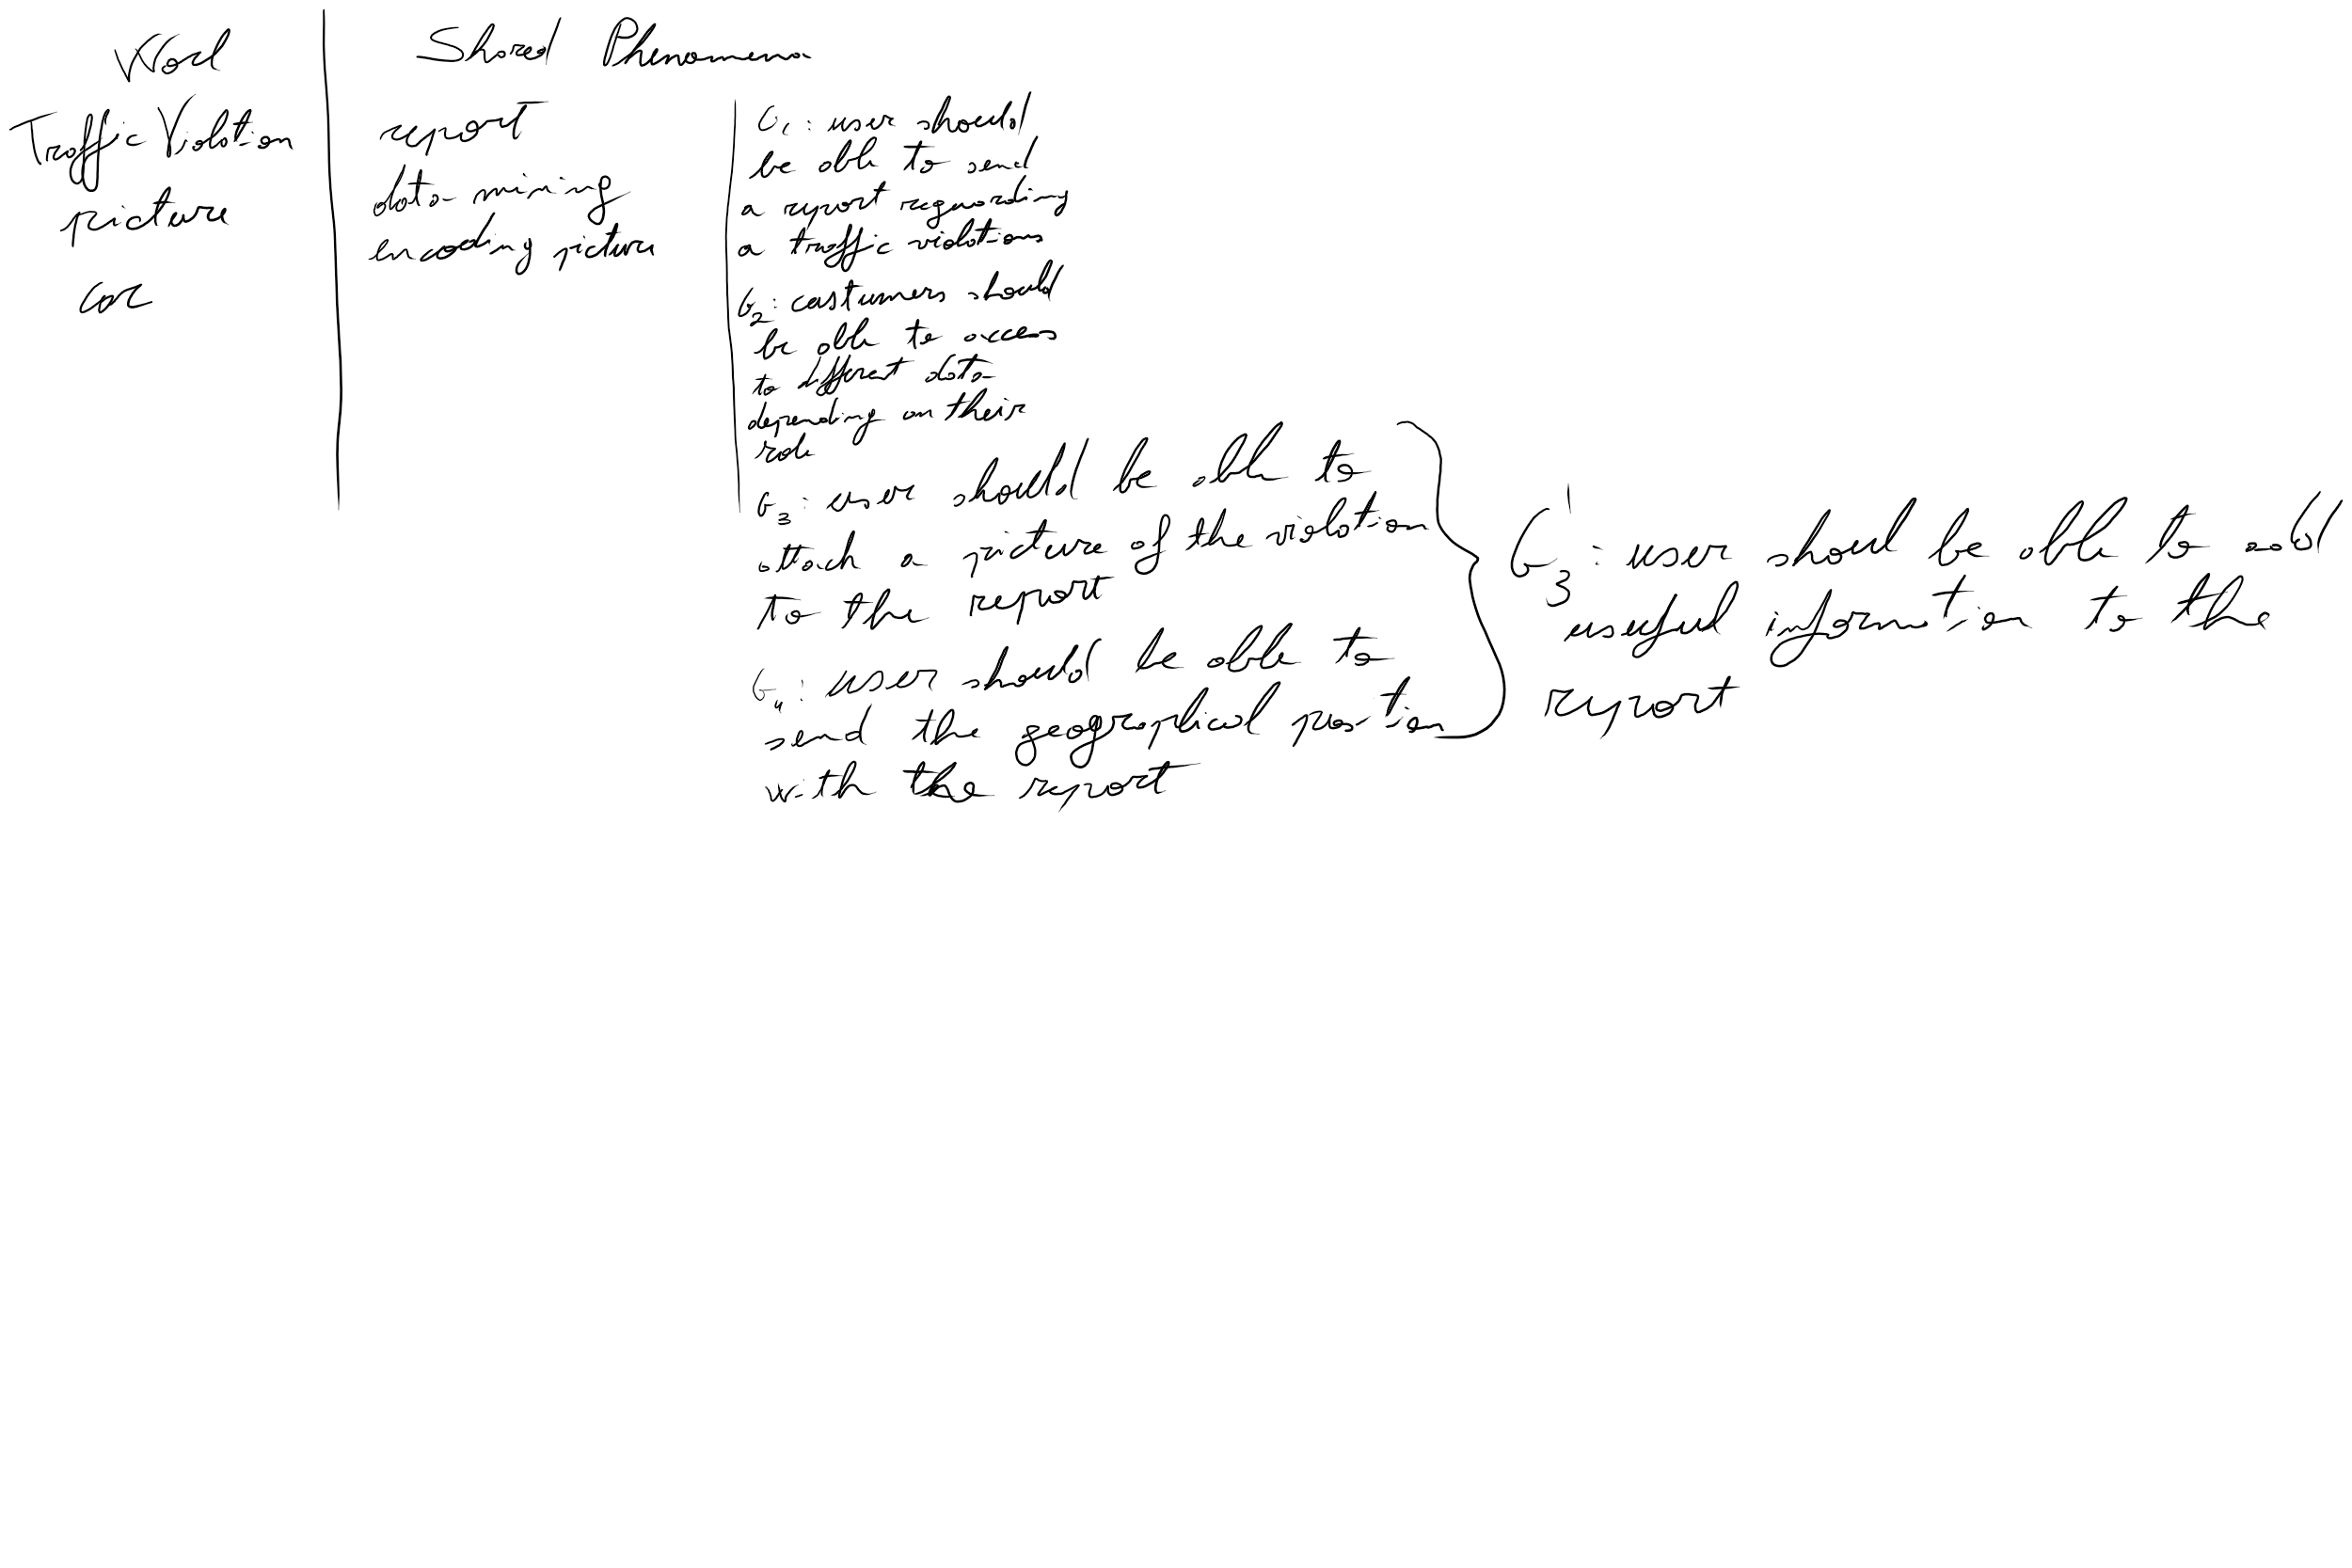 Worl
Traffic Violation
picture
car
Shared Phenomena
report
data mining
encoding picture
G1: user should
be able to send
a report reguarding
a traffic violations
G2: castumers should
be able to access
to different data
depending on their
role
G3: user should be able to
attach a picture of the violation
to the report
G4: user should be able to
send the geographical position
with the report
G3': user shoul be able to add
useful information to the
report